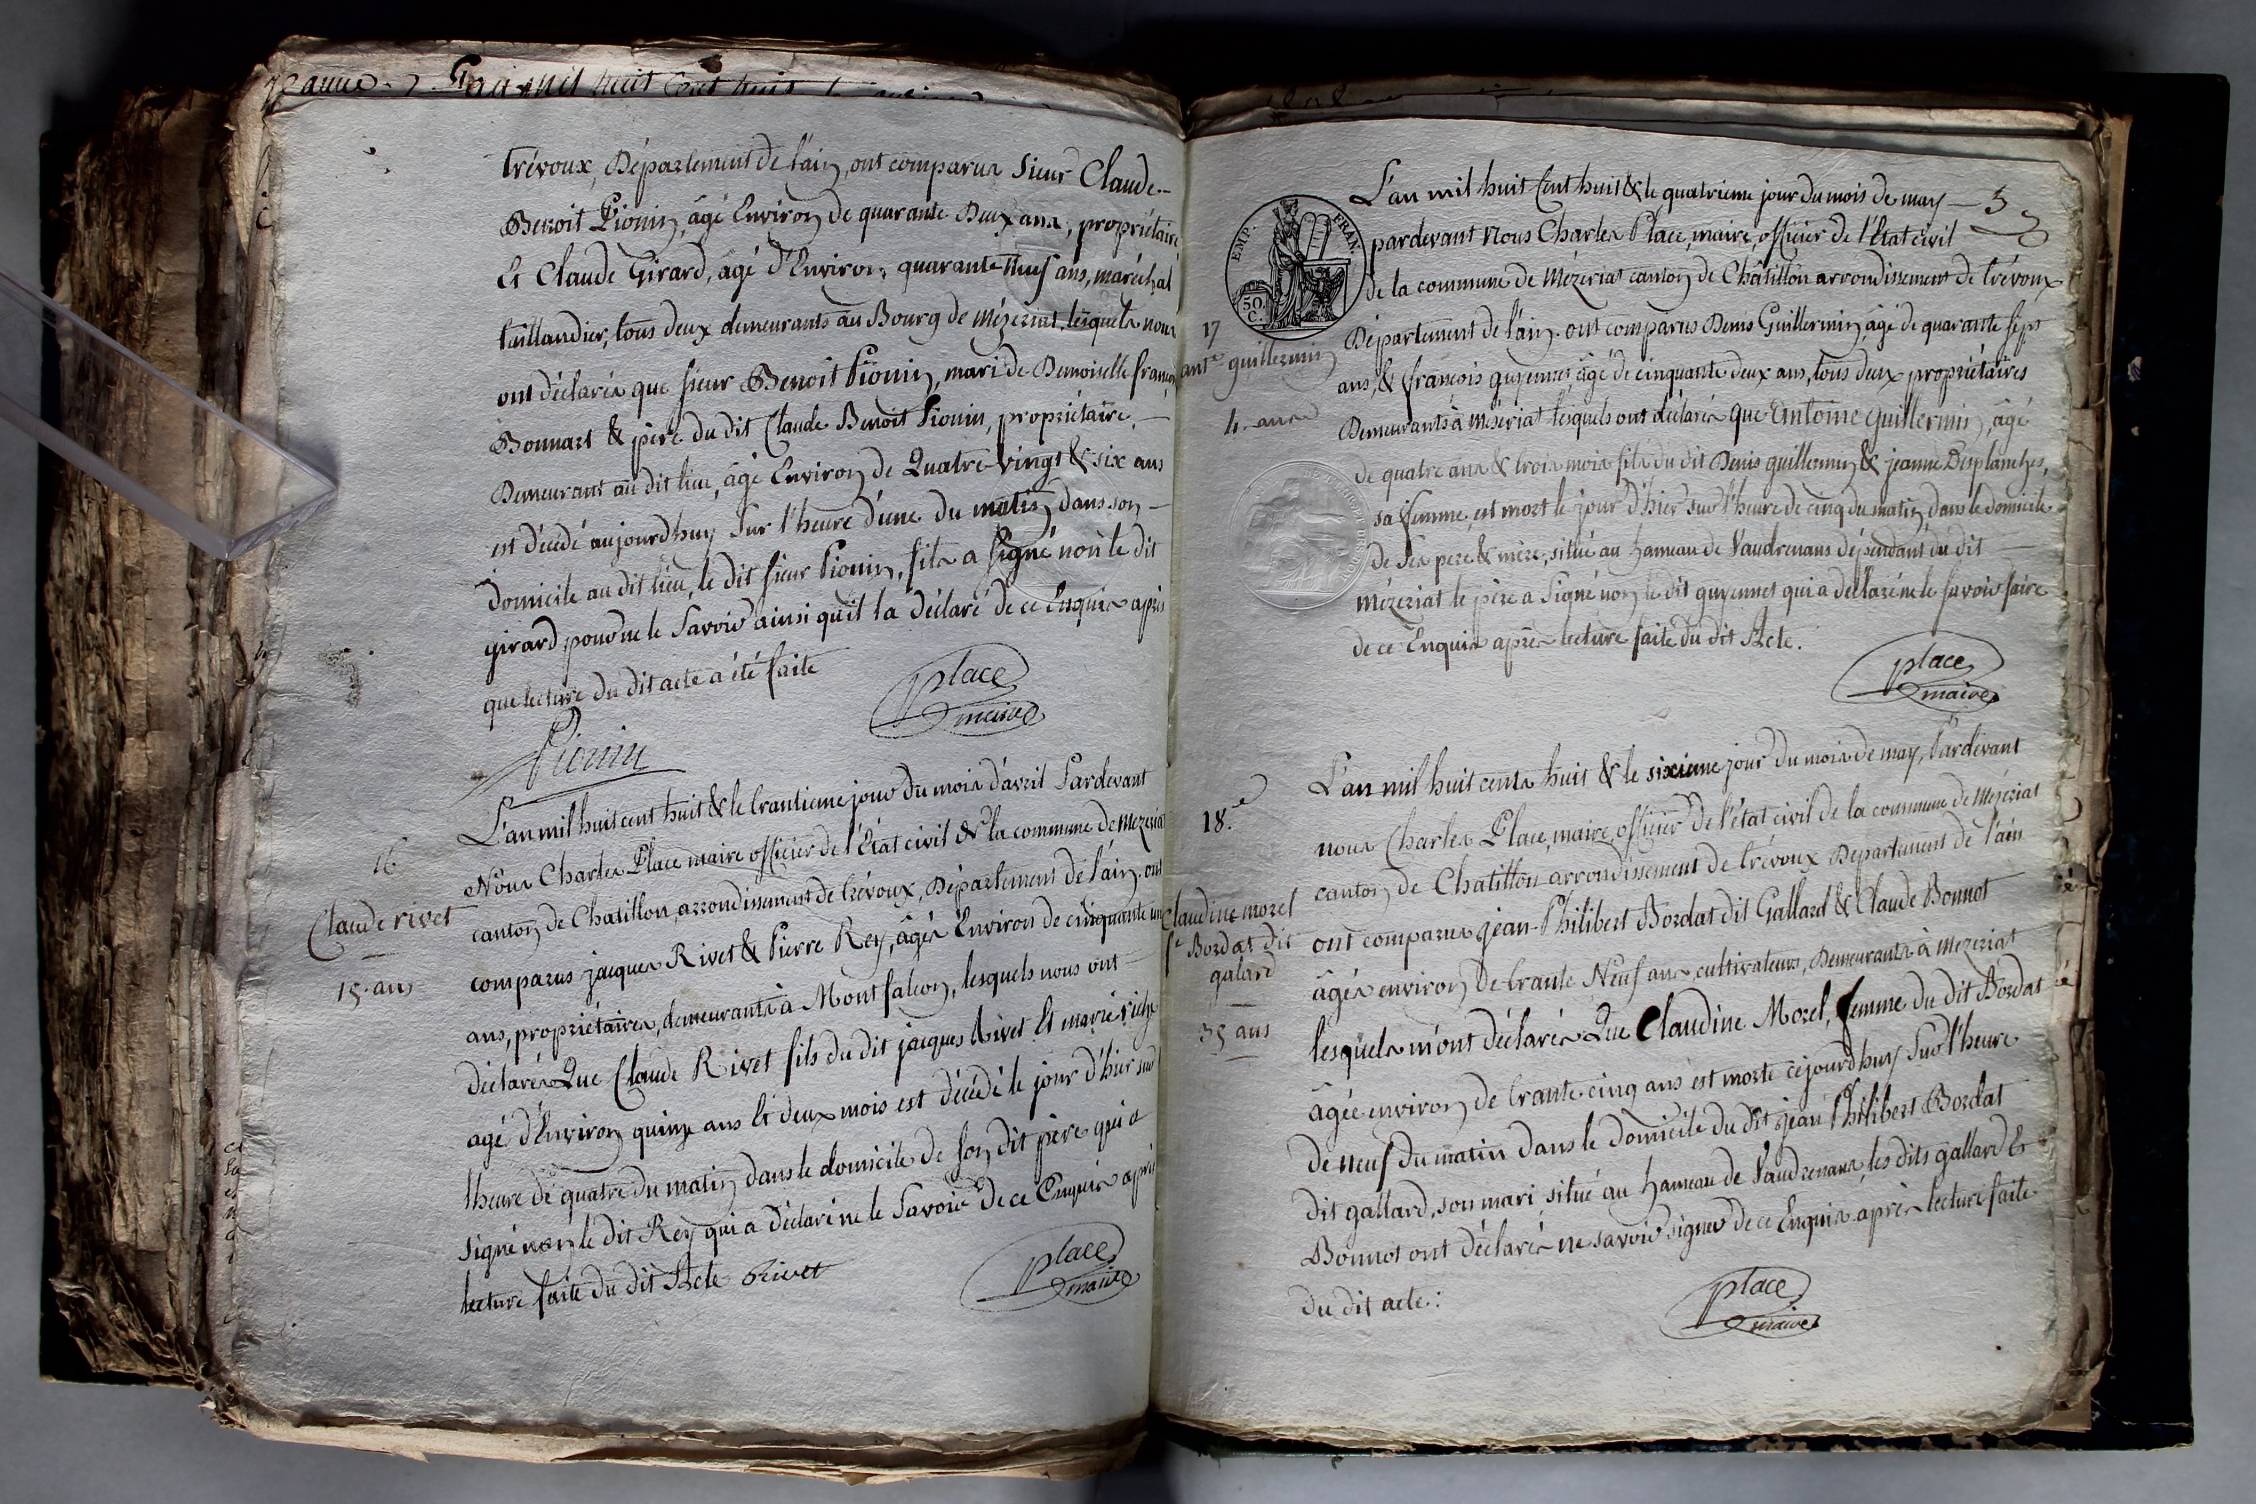 L'an mil huit cent huit
Trévoux, Département de l'ain, ont comparus Sieur Claude-
Benoit Pionin, âgé Environ de quarante Deux ans, propriétaire
Et Claude Girard, âgé d'Environ quarante neuf ans, maréchal
taillandier, tous deux demeurants au Bourg de Mézeriat, lesquels nous
ont déclarés que sieur Benoit Pionin, mari de Demoiselle
Bonnart & père du dit Claude Benoit Pionin, propriétaire,
Demeurant au dit lieu, âgé Environ de Quatre-vingt & six ans
est décédé aujourdhuy sur l'heure d'une du matin dans son
domicile au dit lieu, le dit sieur Pionin, fils a signé non le dit
girard pour ne le savoir ainsi qu'il la déclaré de ce Enquis après
que lecture du dit acte a été faite
place
maire
Pionin
16
Claude rivet
15 ans
L'an mil huit cent huit & le trantieme jour du mois d'avril Pardevant
Nous Charles Place maire officier de l'État civil de la commune de Mezeriat
canton de Chatillon, arrondissement de trévoux, Département de l'ain ont
comparus jacques Rivet & Pierre Rey, âgés Environ de cinquante un
ans, propriétaires, demeurants à Montfalcon, lesquels nous ont
déclarés Que Claude Rivet fils du dit jacques Rivet Et marie
agé d'Environ quinze ans Et deux mois est décédé le jour d'hier sur
l'heure de quatre du matin dans le domicile de son dit père qui a
signé non le dit Rey qui a déclaré ne le savoir de ce Enquis après
lecture faite du dit Acte Rivet
place
maire
EMP. FRAN.
50.
C.
3
17
ant.e guillermin
4 ans
L'an mil huit Cent huit & le quatrieme jour du mois de may
pardevant Nous Charles Place, maire, officier de l'État civil
de la commune de Mézeriat canton de Châtillon arrondissement de trévoux
Département de l'ain. ont comparus Denis Guillermin âgé de quarante sept
ans, & françois guyennet, âgé de cinquante deux ans, tous deux propriétaires
Demeurants à Mézériat lesquels ont déclarés que Antoine Guillermin, âgé
de quatre ans & trois mois fils du dit Denis guillermin & jeanne Desplanches,
sa femme, est mort le jour d'hier sur l'heure de cinq du matin dans le domicile
de ses pere & mère, situé au hameau de Vaudrenans dépendant du dit
Mézeriat le père a signé non le dit guyennet qui a déclaré ne le savoir faire
de ce Enquis après lecture faite du dit Acte.
place
maire
18.e
Claudine morel
f.e Bordat dit
galard
35 ans
L'an mil huit cents huit & le sixieme jour du mois de may, Pardevant
nous Charles Place, maire, officier de l'état civil de la commune de Mézériat
canton de Chatillon arrondissement de trévoux Departement de l'ain
ont comparus jean-Philibert Bordat dit Gallard & Claude Bonnot
âgés environ de trante Neuf ans cultivateurs, Demeurants à Mezeriat
lesquels m'ont déclarés Que Claudine Morel, femme du dit Bordat
âgée environ de trante-cinq ans est morte cejourd'huy sur l'heure
de neuf du matin dans le domicile du dit jean Philibert Bordat
dit gallard, son mari, situé au hameau de Vaudrenans, les dits gallard Et
Bonnot ont déclarés ne savoir signer de ce Enquis après lecture faite
du dit acte.:
place
maire